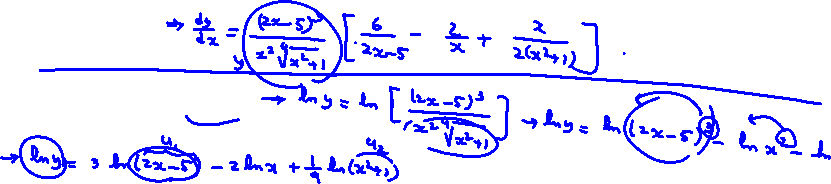 → dy/dx = (2x-5)³ / x² ∜(x²+1) [ 6/(2x-5) - 2/x + x/(2(x²+1)) ] .
y
→ ln y = ln [ (2x-5)³ / x² ∜(x²+1) ] → ln y = ln (2x-5)³ - ln x² - ln
u₁ u₂
→ ln y = 3 ln (2x-5) - 2 ln x + 1/4 ln (x²+1)